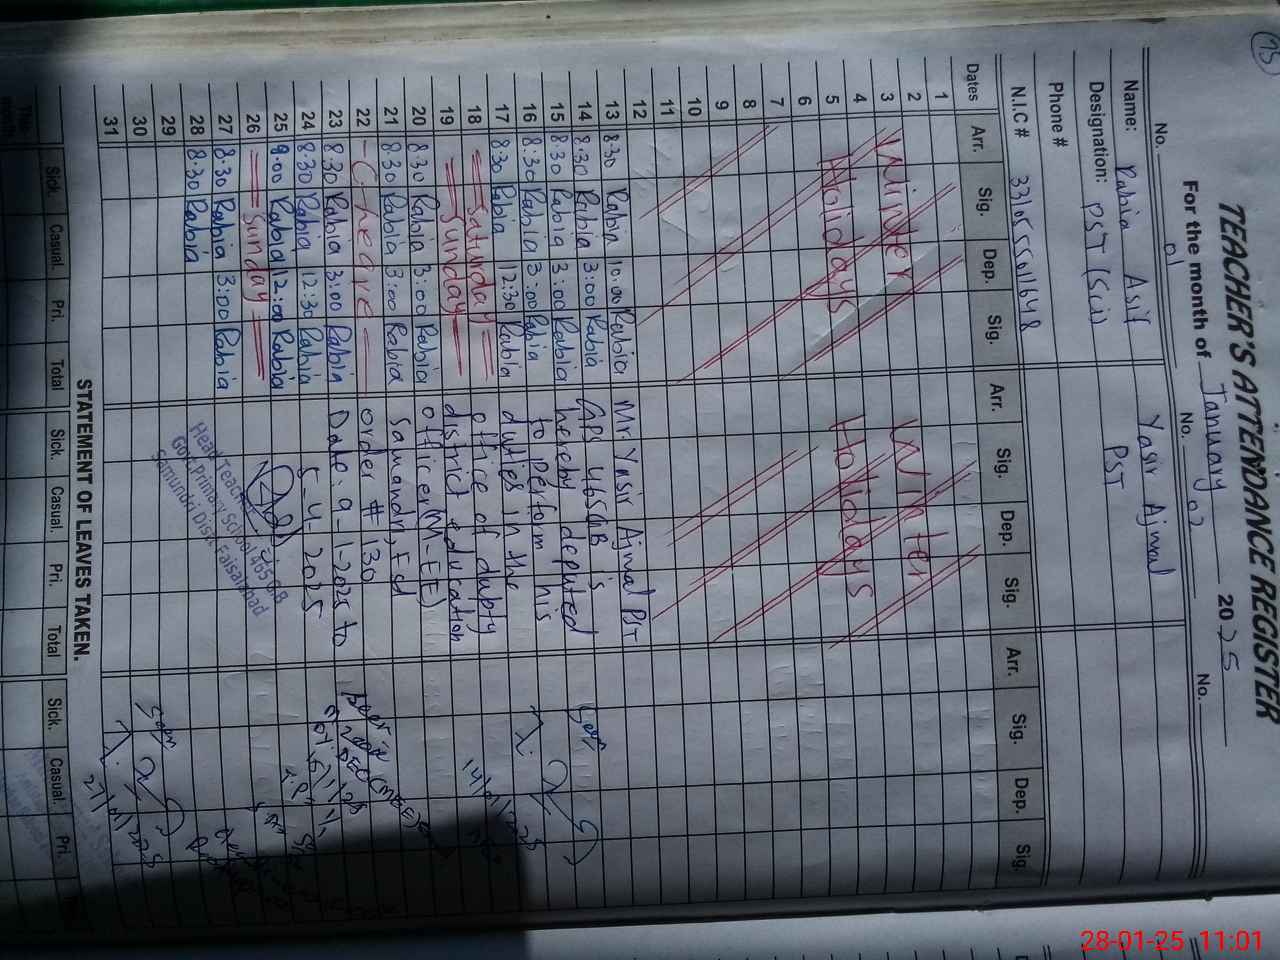 15
TEACHER'S ATTENDANCE REGISTER
For the month of January 2025
No. 01 No. 02 No.
Name: Rabia Asif Yasir Ajmal
Designation: PST (Sci) PST
Phone #
N.I.C #
Dates Arr. Sig. Dep. Sig. Arr. Sig. Dep. Sig. Arr. Sig. Dep. Sig.
1
2
3
4
5
6
7
8
9
10
11
12
Winter Holidays
Winter Holidays
13 8:30 Rabia 10:00 Rabia
14 8:30 Rabia 3:00 Rabia
15 8:30 Rabia 3:00 Rabia
16 8:30 Rabia 3:00 Rabia
17 8:30 Rabia 12:30 Rabia
18 = Saturday =
19 = Sunday =
20 8:30 Rabia 3:00 Rabia
21 8:30 Rabia 3:00 Rabia
22 - C-leave -
23 8:30 Rabia 3:00 Rabia
24 8:30 Rabia 12:30 Rabia
25 9:00 Rabia 12:00 Rabia
26 = Sunday =
27 8:30 Rabia 3:00 Rabia
28 8:30 Rabia
29
30
31
Mr. Yasir Ajmal PST
GPS 465GB is
hereby deputed
to perform his
duties in the
office of duputy
district education
officer (M-EE)
Samundri, Fsd
order # 130
Date: 9-1-2025 to
5-4-2025
Head Teacher
Govt. Primary School 465 G.B
Samundri Distt. Faisalabad
Seen
14/01/2025
Seen
27/01/2025
STATEMENT OF LEAVES TAKEN.
Sick. Casual. Pri. Total Sick. Casual. Pri. Total Sick. Casual. Pri.
This month
28-01-25 11:01